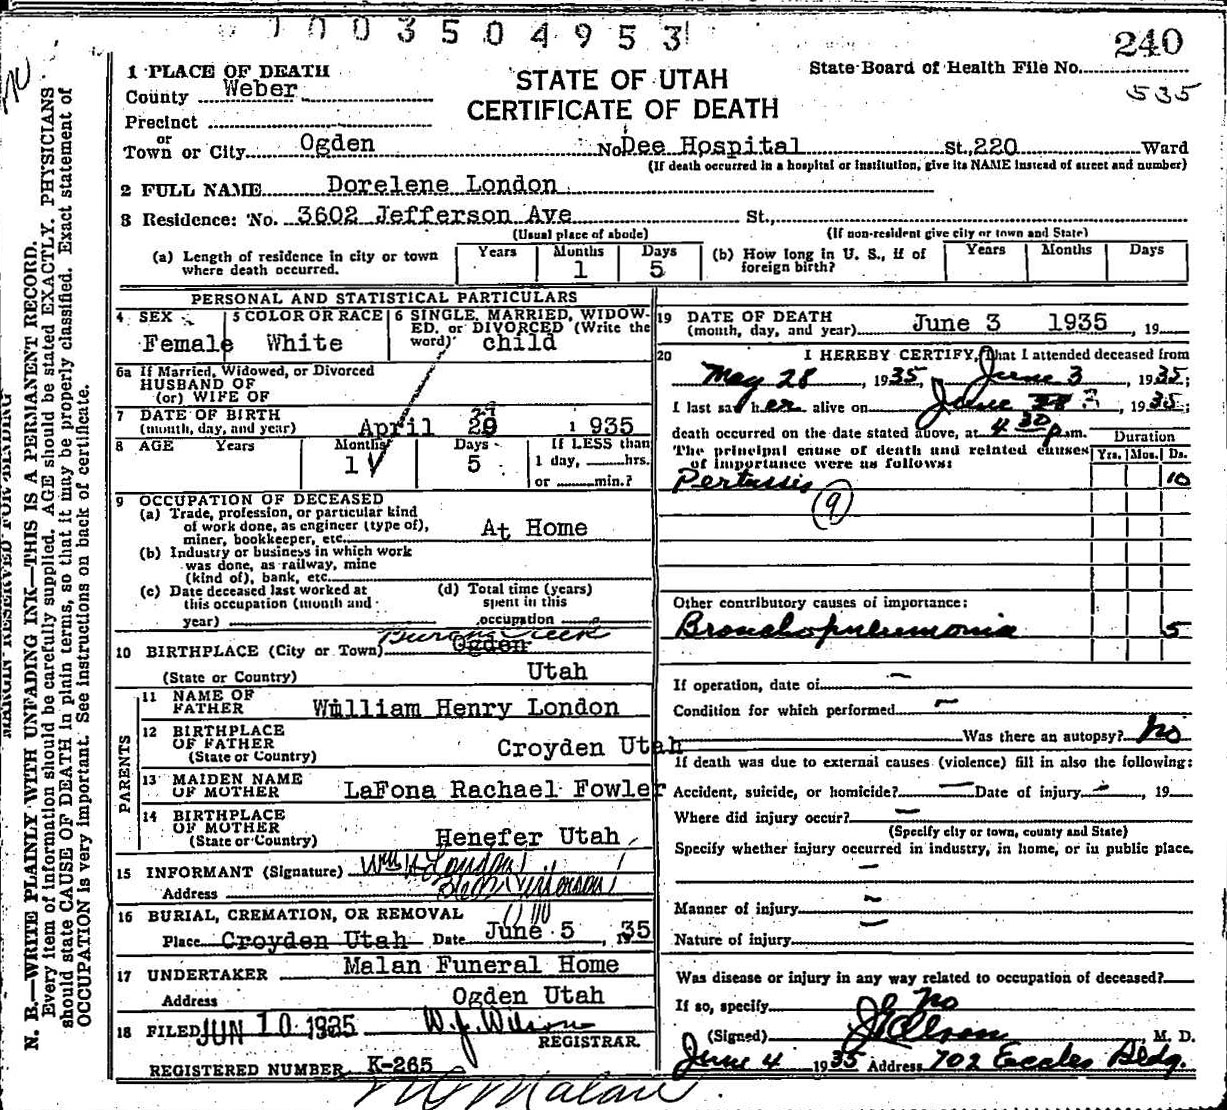 1003504953
240
STATE OF UTAH
CERTIFICATE OF DEATH
State Board of Health File No.
535
1 PLACE OF DEATH
County Weber
Precinct
or
Town or City Ogden No. Dee Hospital St., 220 Ward
(If death occurred in a hospital or institution, give its NAME instead of street and number)
2 FULL NAME Dorelene London
3 Residence: No. 3602 Jefferson Ave St.,
(Usual place of abode) (If non-resident give city or town and State)
(a) Length of residence in city or town where death occurred. Years Months 1 Days 5 (b) How long in U. S., if of foreign birth? Years Months Days
PERSONAL AND STATISTICAL PARTICULARS
4 SEX Female 5 COLOR OR RACE White 6 SINGLE, MARRIED, WIDOWED, or DIVORCED (Write the word) child
6a If Married, Widowed, or Divorced
HUSBAND OF
(or) WIFE OF
7 DATE OF BIRTH
(month, day, and year) April 29 1935
8 AGE Years Months 1 Days 5 If LESS than
1 day, hrs.
or min.?
9 OCCUPATION OF DECEASED
(a) Trade, profession, or particular kind
of work done, as engineer (type of),
miner, bookkeeper, etc. At Home
(b) Industry or business in which work
was done, as railway, mine
(kind of), bank, etc.
(c) Date deceased last worked at
this occupation (month and
year)
(d) Total time (years)
spent in this
occupation
10 BIRTHPLACE (City or Town) Ogden
Creek
(State or Country) Utah
PARENTS
11 NAME OF
FATHER William Henry London
12 BIRTHPLACE
OF FATHER
(State or Country) Croyden Utah
13 MAIDEN NAME
OF MOTHER LaFona Rachael Fowler
14 BIRTHPLACE
OF MOTHER
(State or Country) Henefer Utah
15 INFORMANT (Signature) Wm H London
Address
16 BURIAL, CREMATION, OR REMOVAL
Place Croyden Utah Date June 5, 1935
17 UNDERTAKER Malan Funeral Home
Address Ogden Utah
18 FILED JUN 10 1935 W. J. Wilson
REGISTRAR.
REGISTERED NUMBER K-265
Malan
19 DATE OF DEATH
(month, day, and year) June 3 1935, 19
20 I HEREBY CERTIFY, That I attended deceased from
May 28, 1935, June 3, 1935;
I last saw her alive on June 3, 1935;
death occurred on the date stated above, at 4 30 p.m.
The principal cause of death and related causes
of importance were as follows:
Duration
Yrs. Mos. Ds.
Pertussis 10
(9)
Other contributory causes of importance:
Bronchopneumonia 5
If operation, date of —
Condition for which performed —
Was there an autopsy? No
If death was due to external causes (violence) fill in also the following:
Accident, suicide, or homicide? — Date of injury —, 19
Where did injury occur? —
(Specify city or town, county and State)
Specify whether injury occurred in industry, in home, or in public place.
—
Manner of injury —
Nature of injury —
Was disease or injury in any way related to occupation of deceased?
If so, specify No
(Signed) M. D.
June 4 1935 Address 702 Eccles Bldg.
MARGIN RESERVED FOR BINDING
N. B.—WRITE PLAINLY WITH UNFADING INK—THIS IS A PERMANENT RECORD.
Every item of information should be carefully supplied. AGE should be stated EXACTLY. PHYSICIANS
should state CAUSE OF DEATH in plain terms, so that it may be properly classified. Exact statement of
OCCUPATION is very important. See instructions on back of certificate.